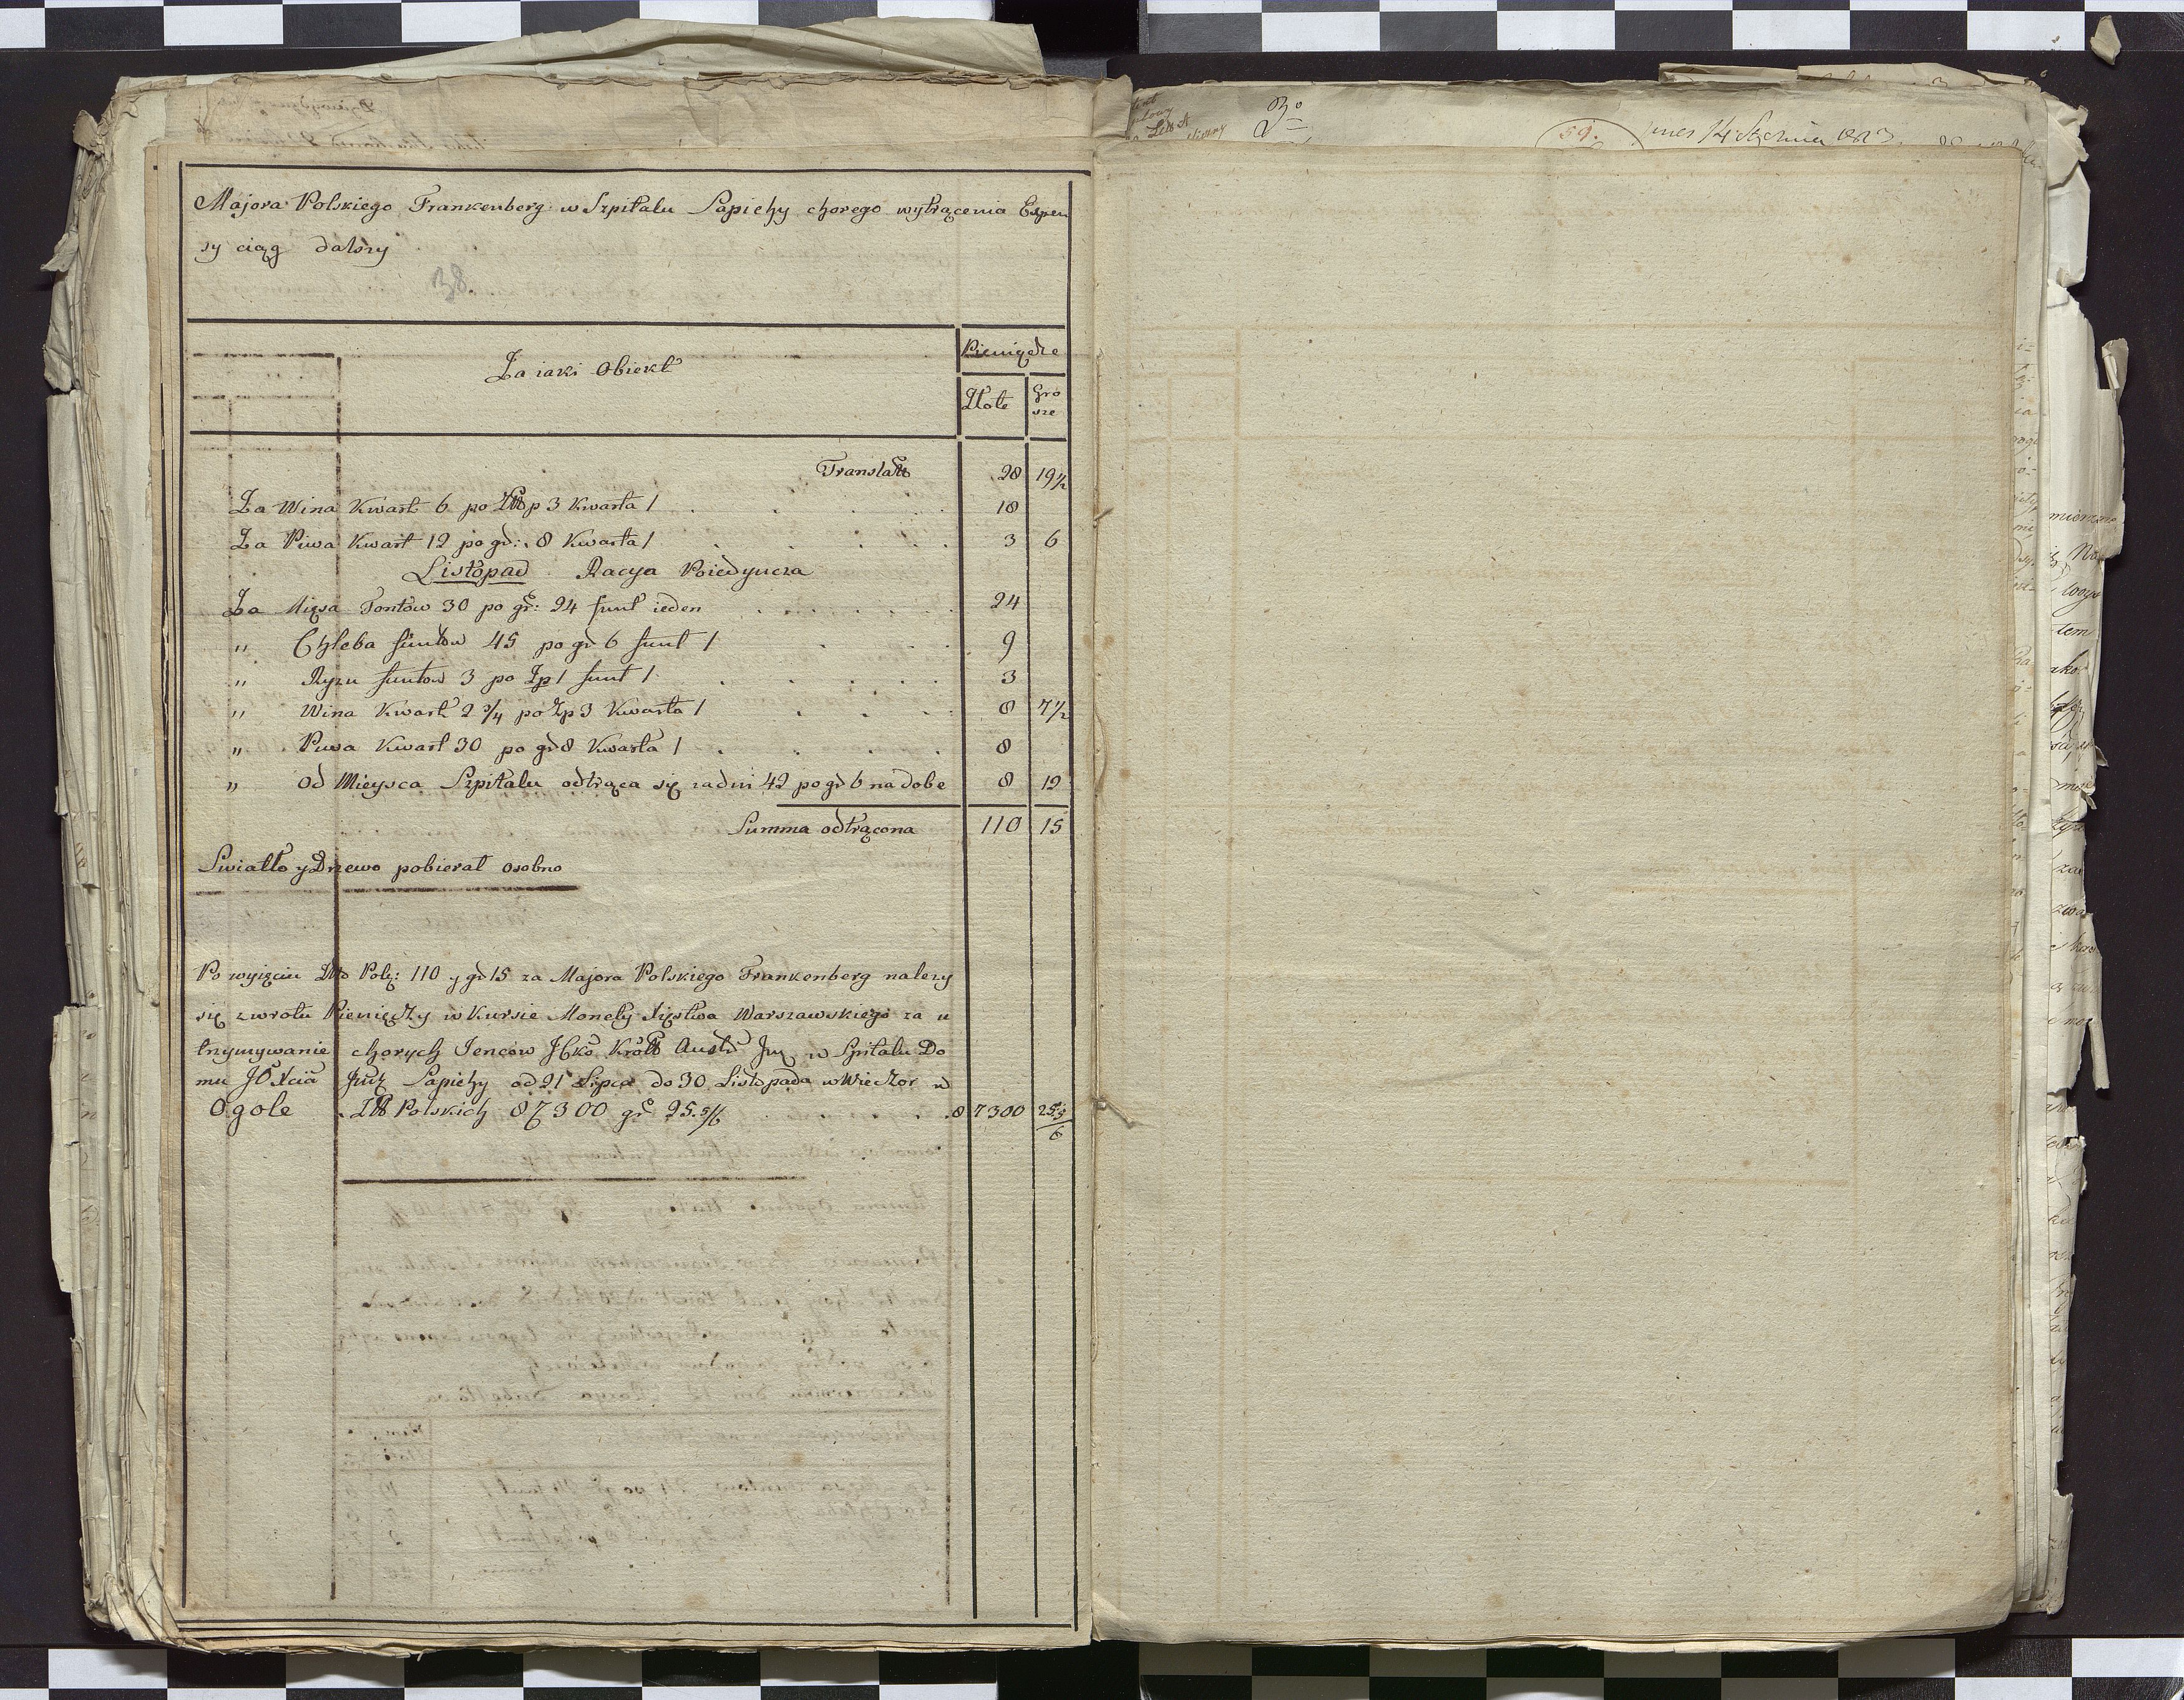 Majora Polskiego Frankenberg w Szpitalu Sapiehy chorego wytrącenia Expen
sy ciąg dalszy
38.
Za iaki Obiekt
Pieniądze
Złote
Gro
sze
Translatt 28 19 1/2
Za Wina Kwart 6 po Złł p 3 Kwarta 1 18
Za Piwa Kwart 12 po gr: 8 Kwarta 1 3 6
Listopad Racya Poiedyncza
Za Mięsa Fontow 30 po gr: 24 funt ieden 24
" Chleba funtow 45 po gr 6 funt 1 9
" Ryzu funtow 3 po Zp 1 funt 1 3
" Wina Kwart 2 3/4 po Zp 3 Kwarta 1 8 7 1/2
" Piwa Kwart 30 po gr 8 Kwarta 1 8
" Od Mieysca Szpitalu odtrąca się za dni 42 po gr 6 na dobe 8 12
Summa odtrącona 110 15
Swiatło y Drzewo pobierał osobno
Po wyięciu Złł Pol: 110 y gr 15 za Majora Polskiego Frankenberg nalezy
się zwrotu Pieniędzy w Kursie Monety Xięstwa Warszawskiego za u
trzymywanie chorych Jencow Kröll Austr w Spitalu Do
mu JO Xcia Sapiehy od 21 Lipca do 30 Listopada w Wieczor w
Ogole Złł Polskich 87300 gr 25. 5/6 87300 25. 5/6
3o
59.